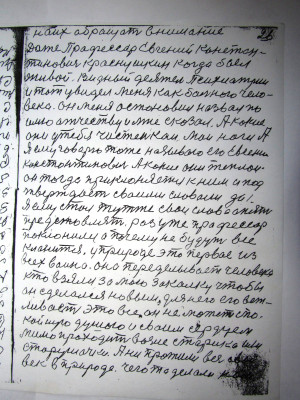 на них обращать внимание
23
Даже Прадфессар Евгений Констан-
танович краснушкин когда был
живой. Видный деятел Псшхиатрии
и тот увидел меня как больного чело-
века. Он меня остоновил назвал по
имю атчеству и мне сказал. А какие
они у тебя чистенкаи Маи ноги А
я ему говорю тоже назвал его Евгени
констонтинович А какие они теплаи
он тогда приклоняетси к ним и под
тверждает своими словами да!
Я ему стал тутже свои слова опять
предстовлят раз уже професср
поклонилси почему не будут все
кланится, у природе это первае из
всех ваина. оно переделывает человека
кто взялси за мою закалку чтобы
он сделался новым для него вэж-
ливасть Это все он не может спо-
койшо душою и своим сердцем
мимо проходит возле старика или
старушачки. Ани прожили все
век в природе. чего то делали